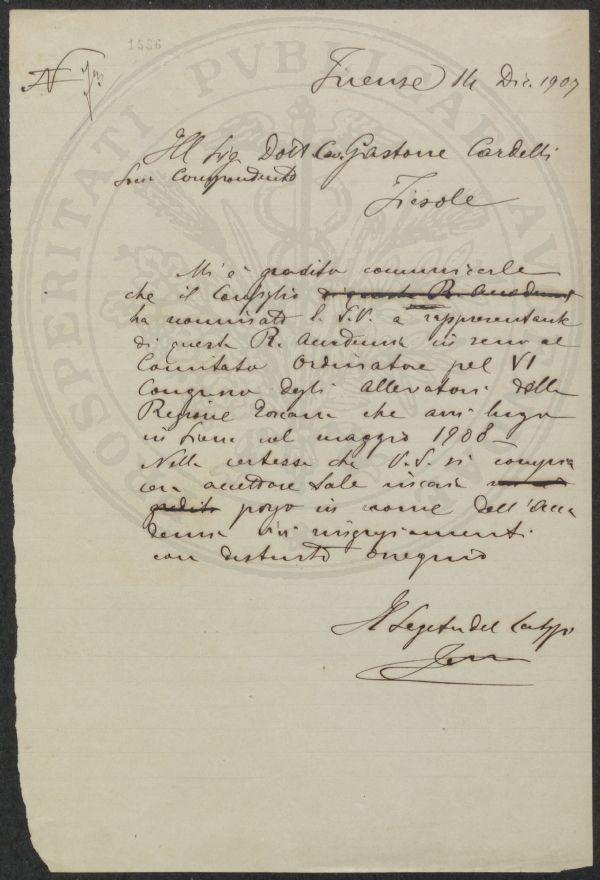 1586
N
Firenze 14 Dic. 1907
Ill Sig Dott. Cav. Gastone Cardelli
Socio Corrispondente
Fiesole
Mi è gradito comunicarle
che il Consiglio di questa R. Accademia
ha nominato la S.V. a rappresentante
di questa R. Accademia in seno al
Comitato Ordinatore pel VI
Congresso degli Allevatori della
Regione Toscana che avrà luogo
in Siena nel maggio 1908 –
Nella certezza che V.S. si compia
cerà accettare tale incarico
gradito porgo in nome dell'Acca
demia vivi ringraziamenti
con distinto ossequio
Il Segretn del
PROSPERITATI PVBLICAE AVGENDAE